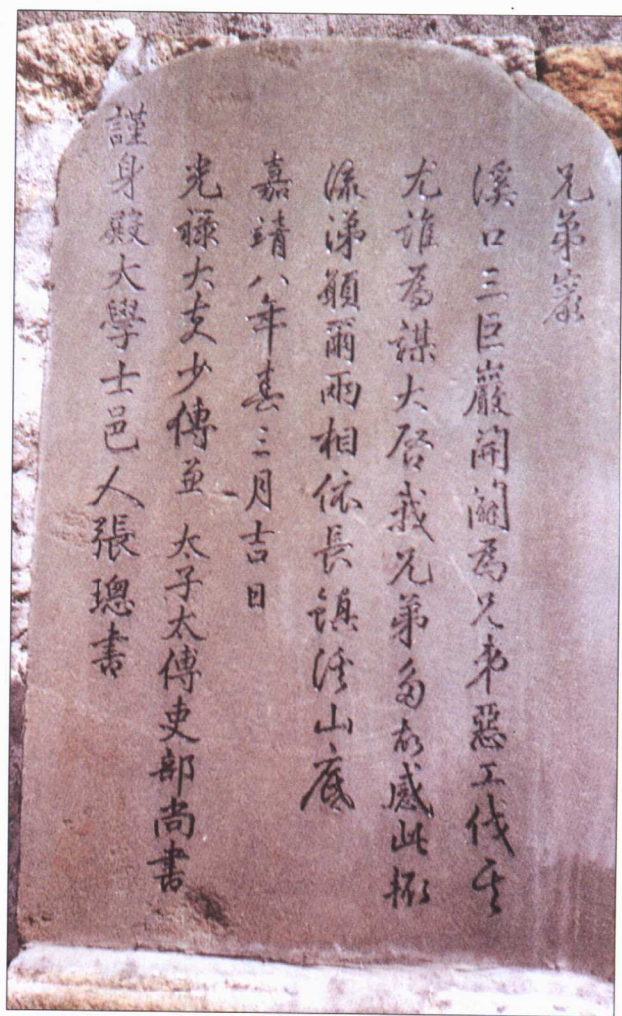 兄弟巖
溪口三巨巖開闢為兄弟惡工伐其
尤誰為謀大啓我兄弟多故感此橛
流涕願爾兩相依長鎮溪山底
嘉靖八年春三月吉日
光祿大夫少傅兼 太子太傅吏部尚書
謹身殿大學士邑人張璁書